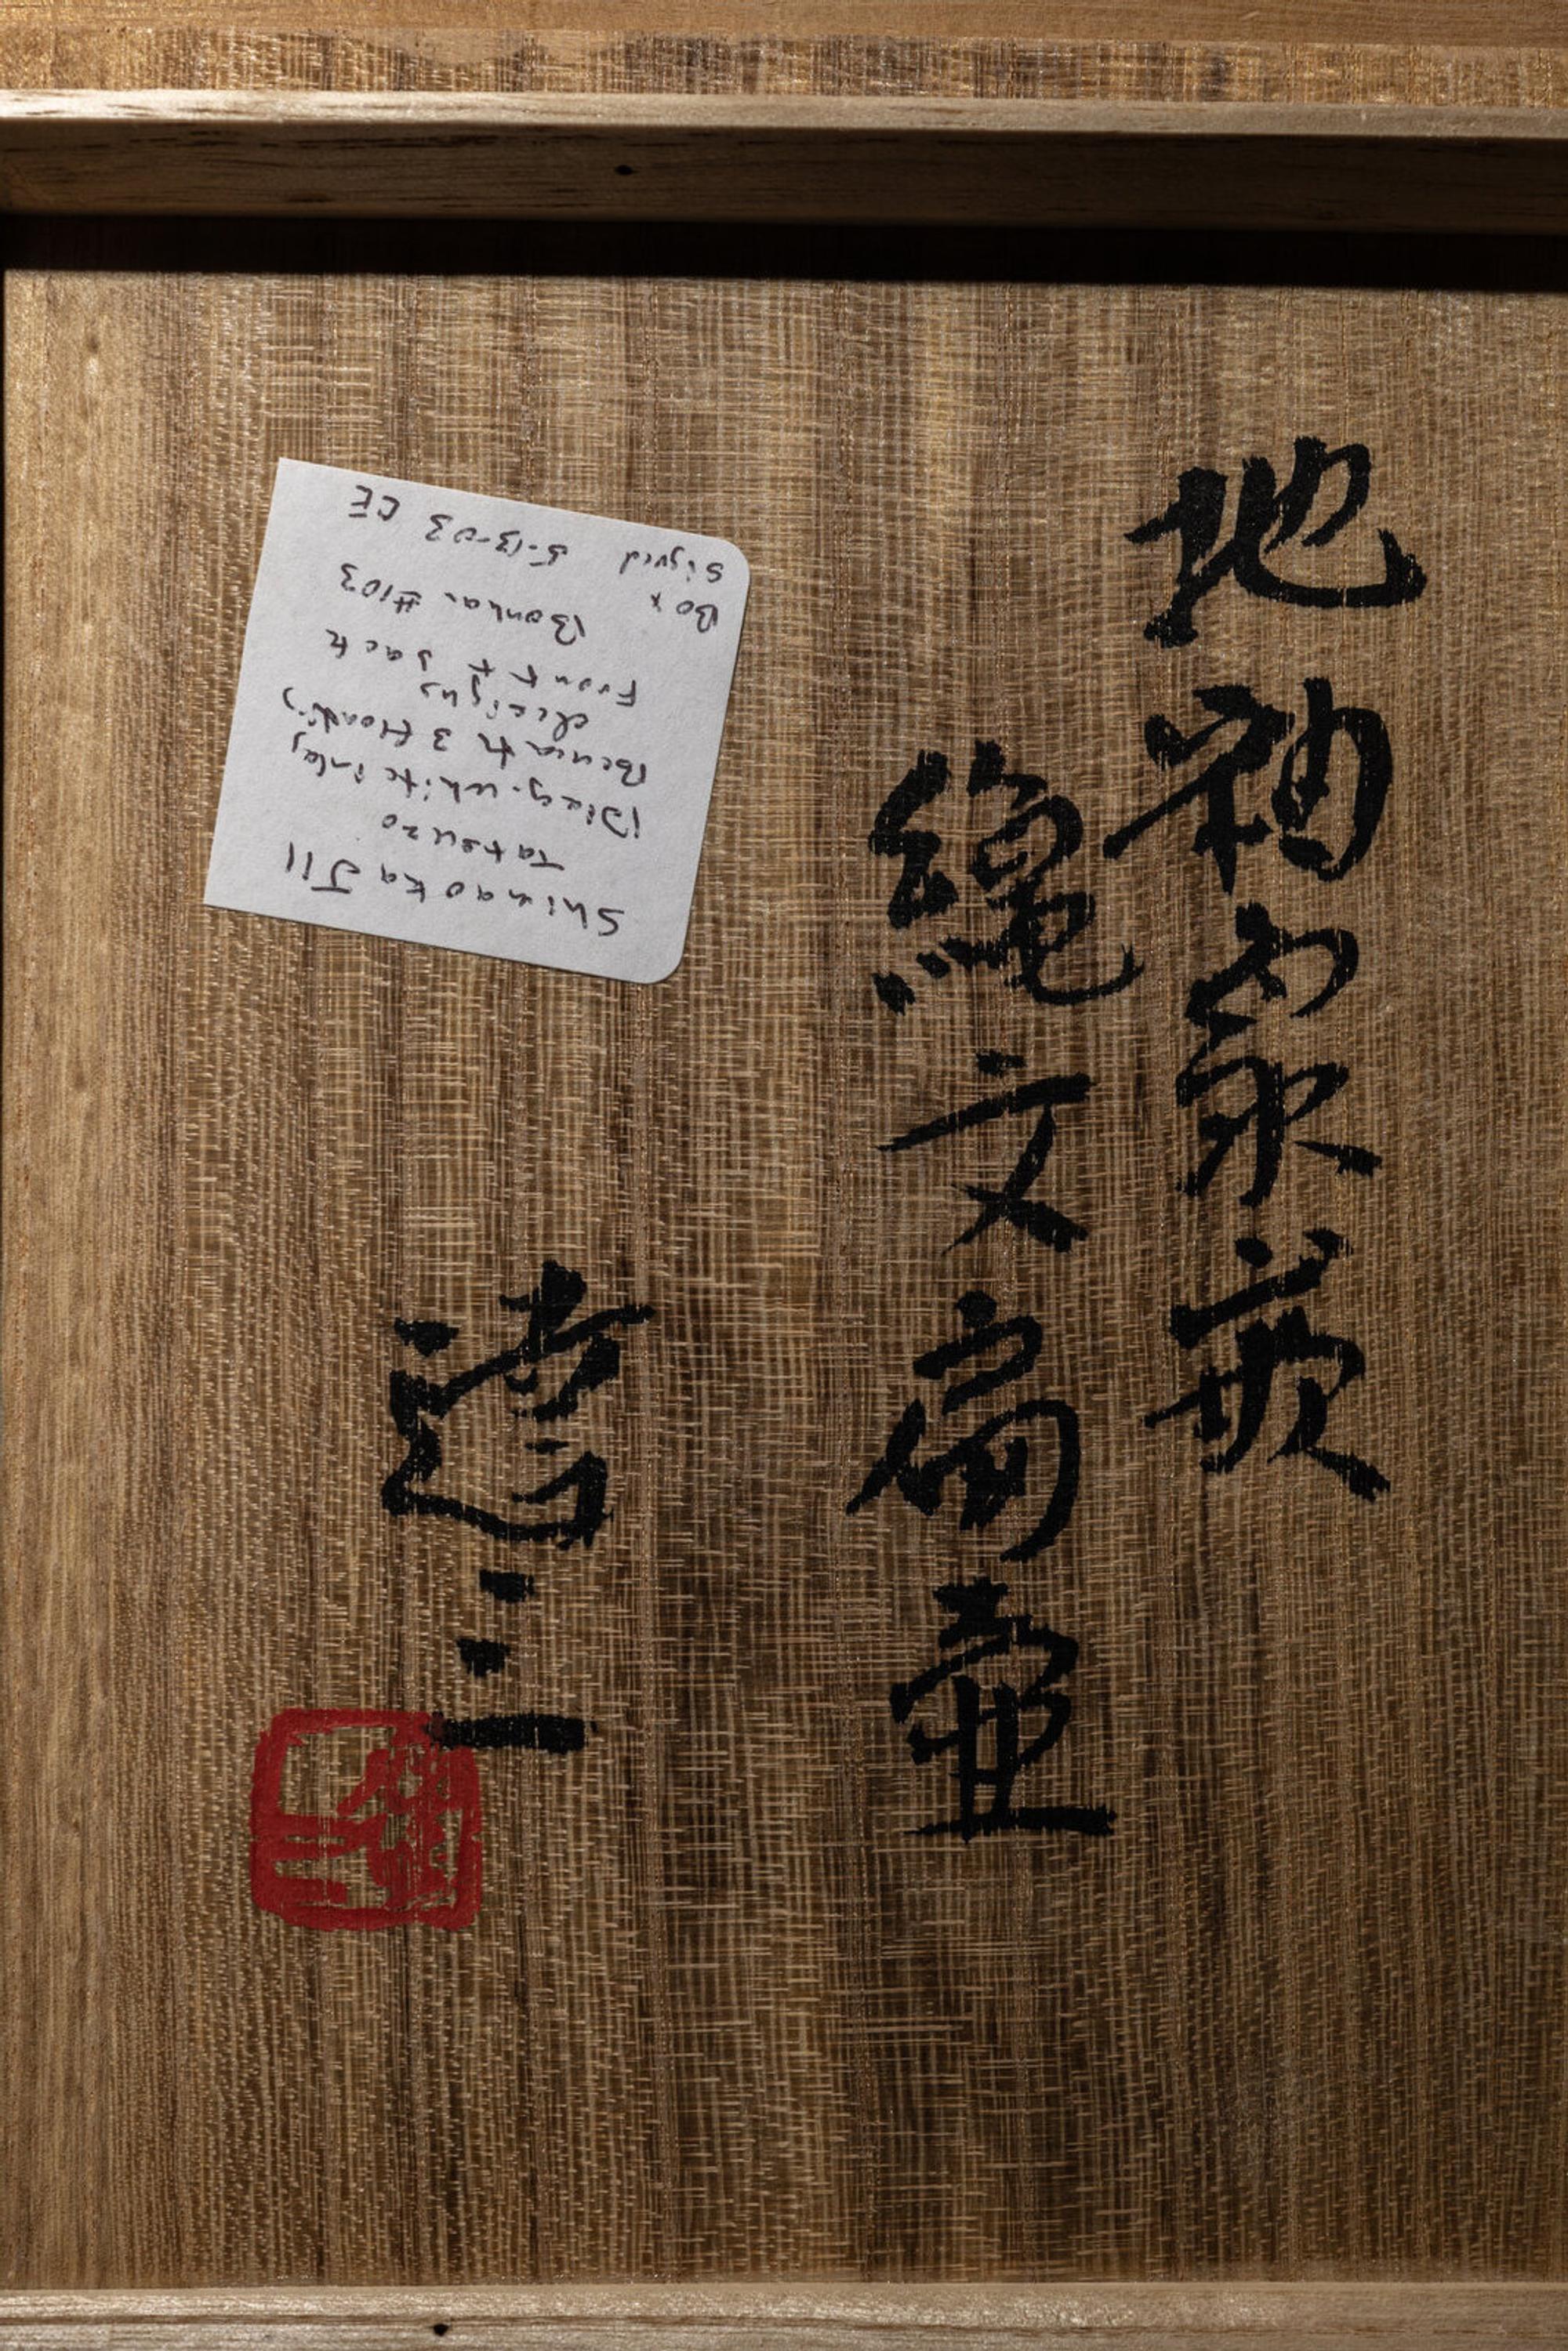 地釉象嵌
縄文扁壺
達三
Shimaoka J11
Tatsuzo
Diag. white inlay
Beneath 3 floating
designs
Front + back
Box #103
Signed 5-13-03 CE